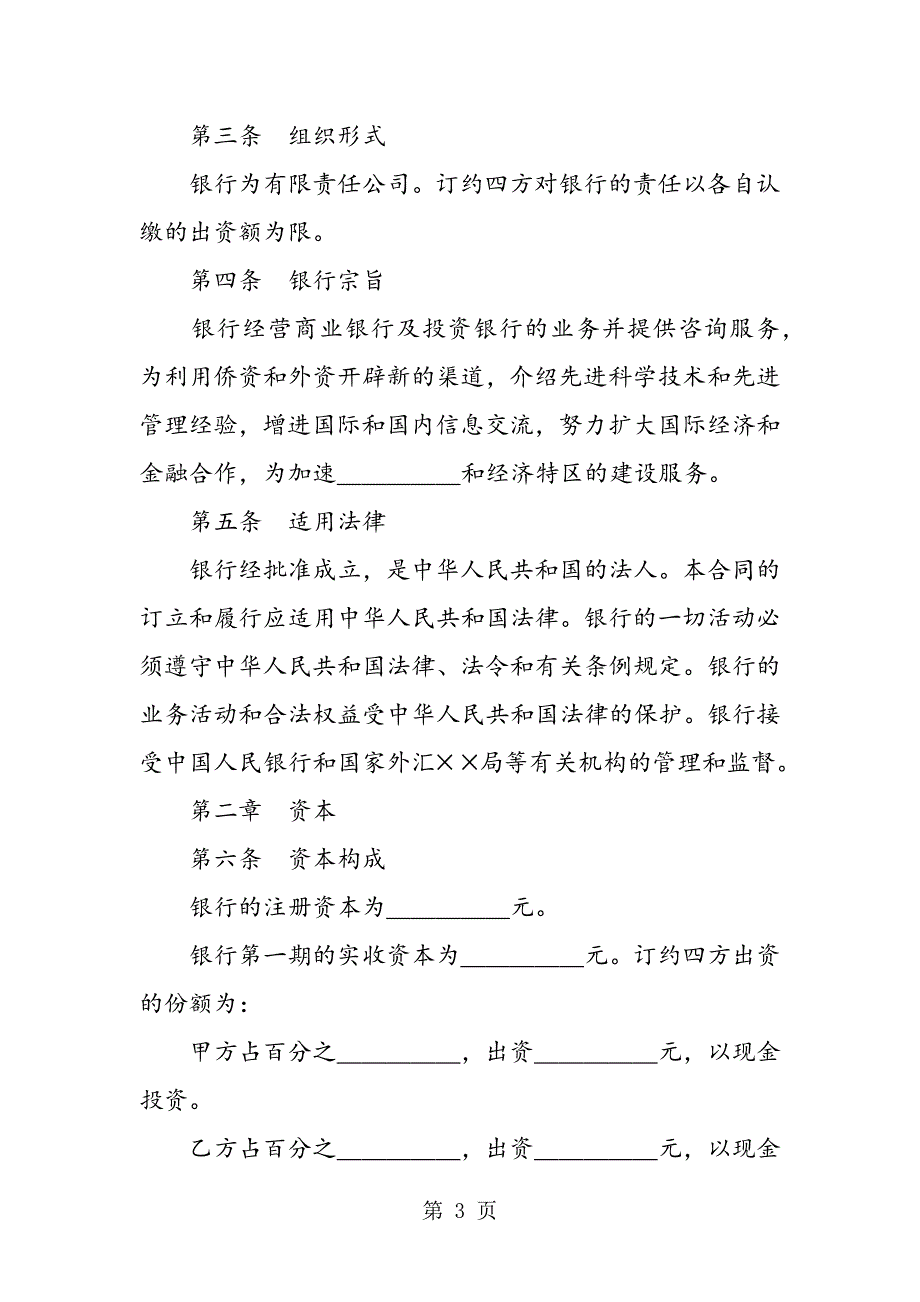 第三条　组织形式
银行为有限责任公司。订约四方对银行的责任以各自认
缴的出资额为限。
第四条　银行宗旨
银行经营商业银行及投资银行的业务并提供咨询服务，
为利用侨资和外资开辟新的渠道，介绍先进科学技术和先进
管理经验，增进国际和国内信息交流，努力扩大国际经济和
金融合作，为加速__________和经济特区的建设服务。
第五条　适用法律
银行经批准成立，是中华人民共和国的法人。本合同的
订立和履行应适用中华人民共和国法律。银行的一切活动必
须遵守中华人民共和国法律、法令和有关条例规定。银行的
业务活动和合法权益受中华人民共和国法律的保护。银行接
受中国人民银行和国家外汇××局等有关机构的管理和监督。
第二章　资本
第六条　资本构成
银行的注册资本为__________元。
银行第一期的实收资本为__________元。订约四方出资
的份额为：
甲方占百分之__________，出资__________元，以现金
投资。
乙方占百分之__________，出资__________元，以现金
第 3 页